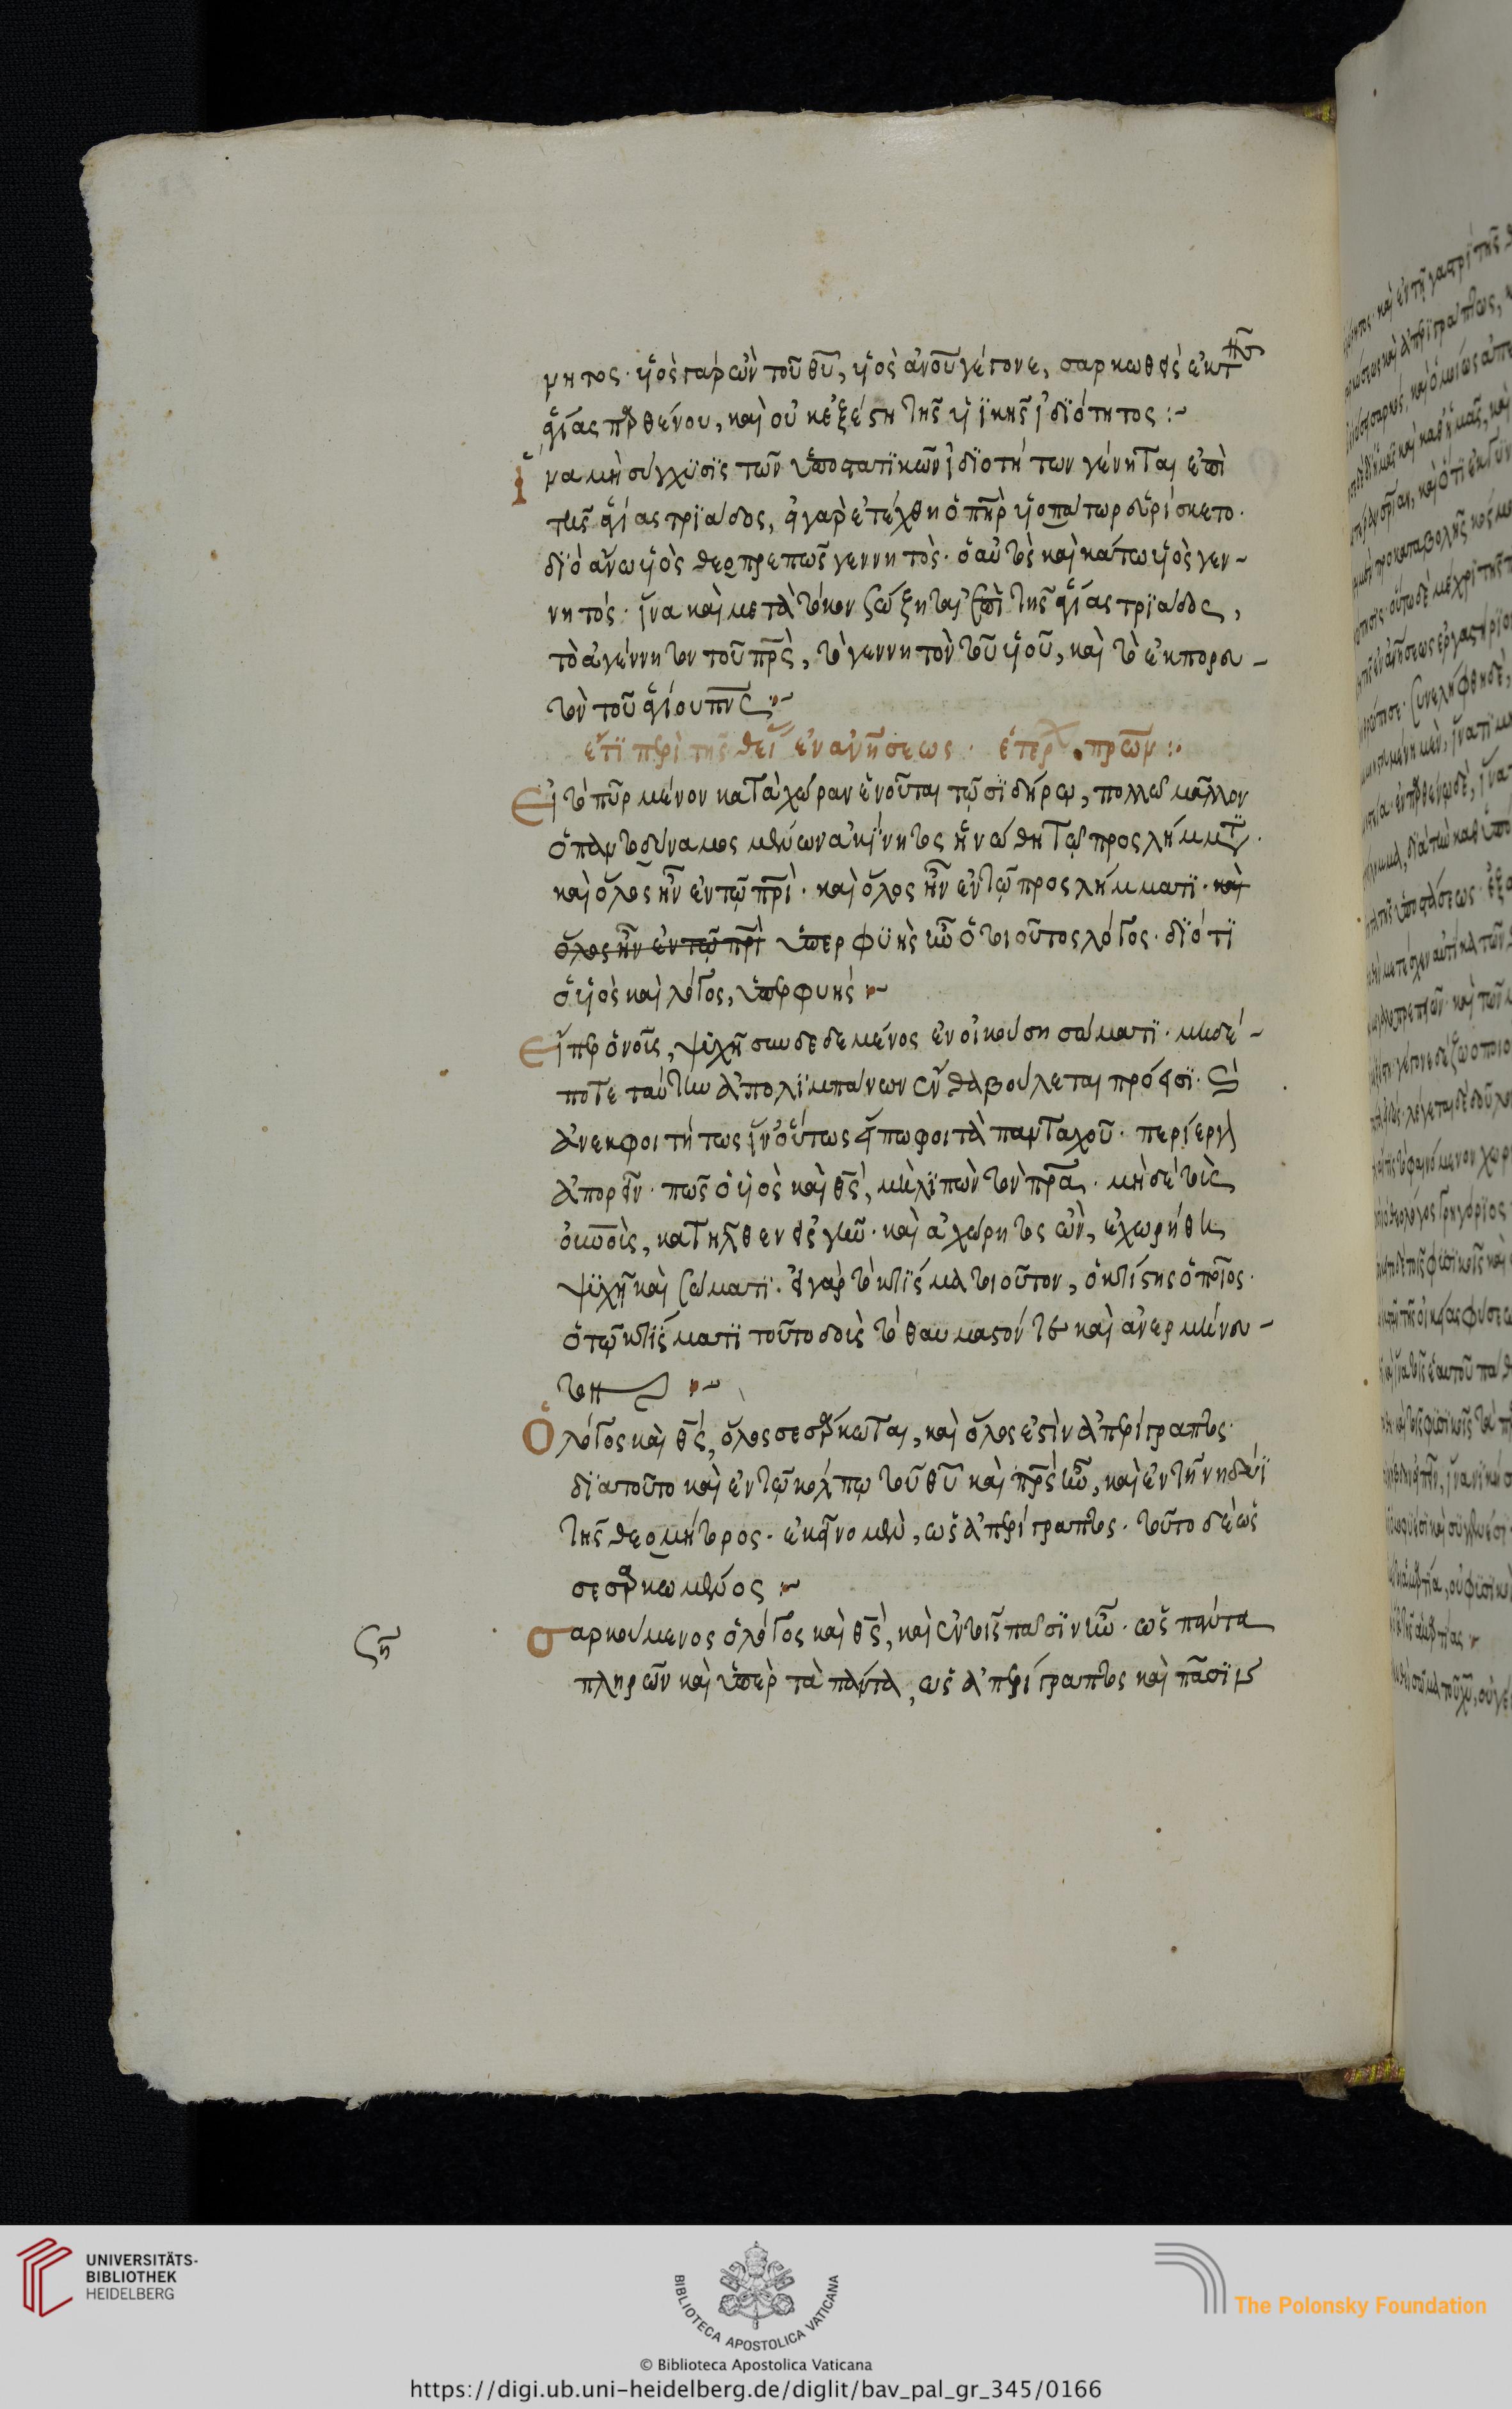 μητος· υἱὸς γὰρ ὢν τοῦ θυ̅, υἱὸς ἀνου̅ γέγονε, σαρκωθεὶς ἐκ τῆς
ἁγίας πρθένου, καὶ οὐκ ἐξέστη τῆς υἱϊκῆς ἰδϊότητος :~
ἵνα μὴ σύγχϋσϊς τῶν ὑποστατϊκῶν ἰδϊοτήτων γένηται ἐπὶ
τῆς ἁγίας τρϊάδος, εἰ γὰρ ἐτέχθη ὁ πη̅ρ υἱοπάτωρ εὑρίσκετο·
δϊὸ ἄνω υἱὸς θεοπρεπῶς γεννητὸς· ὁ αὐτὸς καὶ κάτω υἱὸς γεν-
νητός· ἵνα καὶ μετὰ τόκον σώζηται ἐπὶ τῆς ἁγίας τρϊάδος,
τὸ ἀγέννητον τοῦ πρ̅ς, τὸ γεννητὸν τοῦ υἱοῦ, καὶ τὸ ἐκπορευ-
τὸν τοῦ ἁγίου πν̅ς :~
ἔτϊ περὶ τῆς θεί ἐναν̅ήσεως· ἑτερ πρῶν :·
Εἰ τὸ πῦρ μένον κατὰ χώραν ἑνοῦται τῷ σϊδήρῳ, πολλῷ μᾶλλον
ὁ παντοδύναμος μένων ἀκϊνήτως ἡνώθη τῷ προσλήμματϊ·
καὶ ὅλος ἦν ἐν τῷ πρ̅ὶ· καὶ ὅλος ἦν ἐν τῷ προσλήμματϊ· καὶ
ὅλος ἦν ἐν τῷ πρ̅ὶ ὑπερφϋὴς ὁ τοιοῦτος λόγος· δϊότϊ
ὁ υἱὸς καὶ λόγος, ὑπερφυής :~
Εἴπερ ὁ νοῦς, ψϋχῇ συνδεδεμένος ἐνοικούσῃ σώματϊ· μηδέ-
ποτε ταύτην ἀπολϊμπάνων ἔνθα βούλεται πρόεισϊ·
ἀνεκφοιτήτως ἵν' οὕτως εἴπω φοιτᾷ πανταχοῦ· περίεργ
ἀπορεῖν· πῶς ὁ υἱὸς καὶ θς̅, μὴ λϊπὼν τὸν πρ̅α· μηδὲ τοὺς
οὐρανοὺς, κατῆλθεν εἰς γῆν· καὶ ἀχώρητος ὢν, ἐχωρήθη
ψϋχῇ καὶ σώματϊ· εἰ γὰρ τὸ κτϊσμα τοιοῦτον, ὁ κτίστης ὁποῖος·
ὁ τῷ κτϊσματϊ τοῦτο δοὺς τὸ θαυμαστόν τε καὶ ἀνερμήνευ-
τον :~
Ὁ λόγος καὶ θς̅, ὅλος σεσάρκωται, καὶ ὅλος ἐστὶν ἀπερίγραπτος·
δϊὰ τοῦτο καὶ ἐν τῷ κόλπῳ τοῦ θυ̅ καὶ πρ̅ς ἦν, καὶ ἐν τῇ νηδύϊ
τῆς θεομήτορος· ἐκεῖνο μὲν, ὡς ἀπερίγραπτος· τοῦτο δὲ ὡς
σεσαρκωμένος :~
Σαρκούμενος ὁ λόγος καὶ θς̅, καὶ ἐν τοῖς πᾶσϊν ἦν· ὡς πάντα
πληρῶν καὶ ὑπὲρ τὰ πάντα, ὡς ἀπερίγραπτος καὶ πᾶσϊ
UNIVERSITÄTS-
BIBLIOTHEK
HEIDELBERG
BIBLIOTECA APOSTOLICA VATICANA
The Polonsky Foundation
© Biblioteca Apostolica Vaticana
https://digi.ub.uni-heidelberg.de/diglit/bav_pal_gr_345/0166